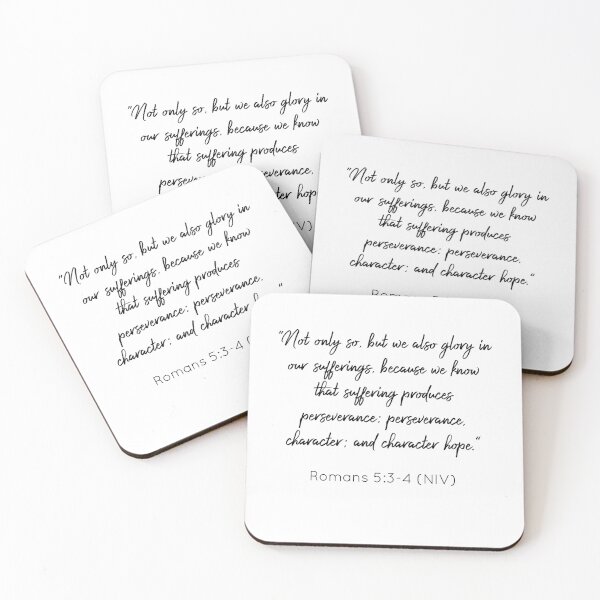 "Not only so, but we also glory in
our sufferings, because we know
that suffering produces
hope
"Not only so, but we also glory in
our sufferings, because we know
that suffering produces
perseverance; perseverance,
character; and character hope."
Romans
"Not only so, but we also glory in
our sufferings, because we know
that suffering produces
perseverance; perseverance,
character; and character
Romans 5:3-4
"Not only so, but we also glory in
our sufferings, because we know
that suffering produces
perseverance; perseverance,
character; and character hope."
Romans 5:3-4 (NIV)